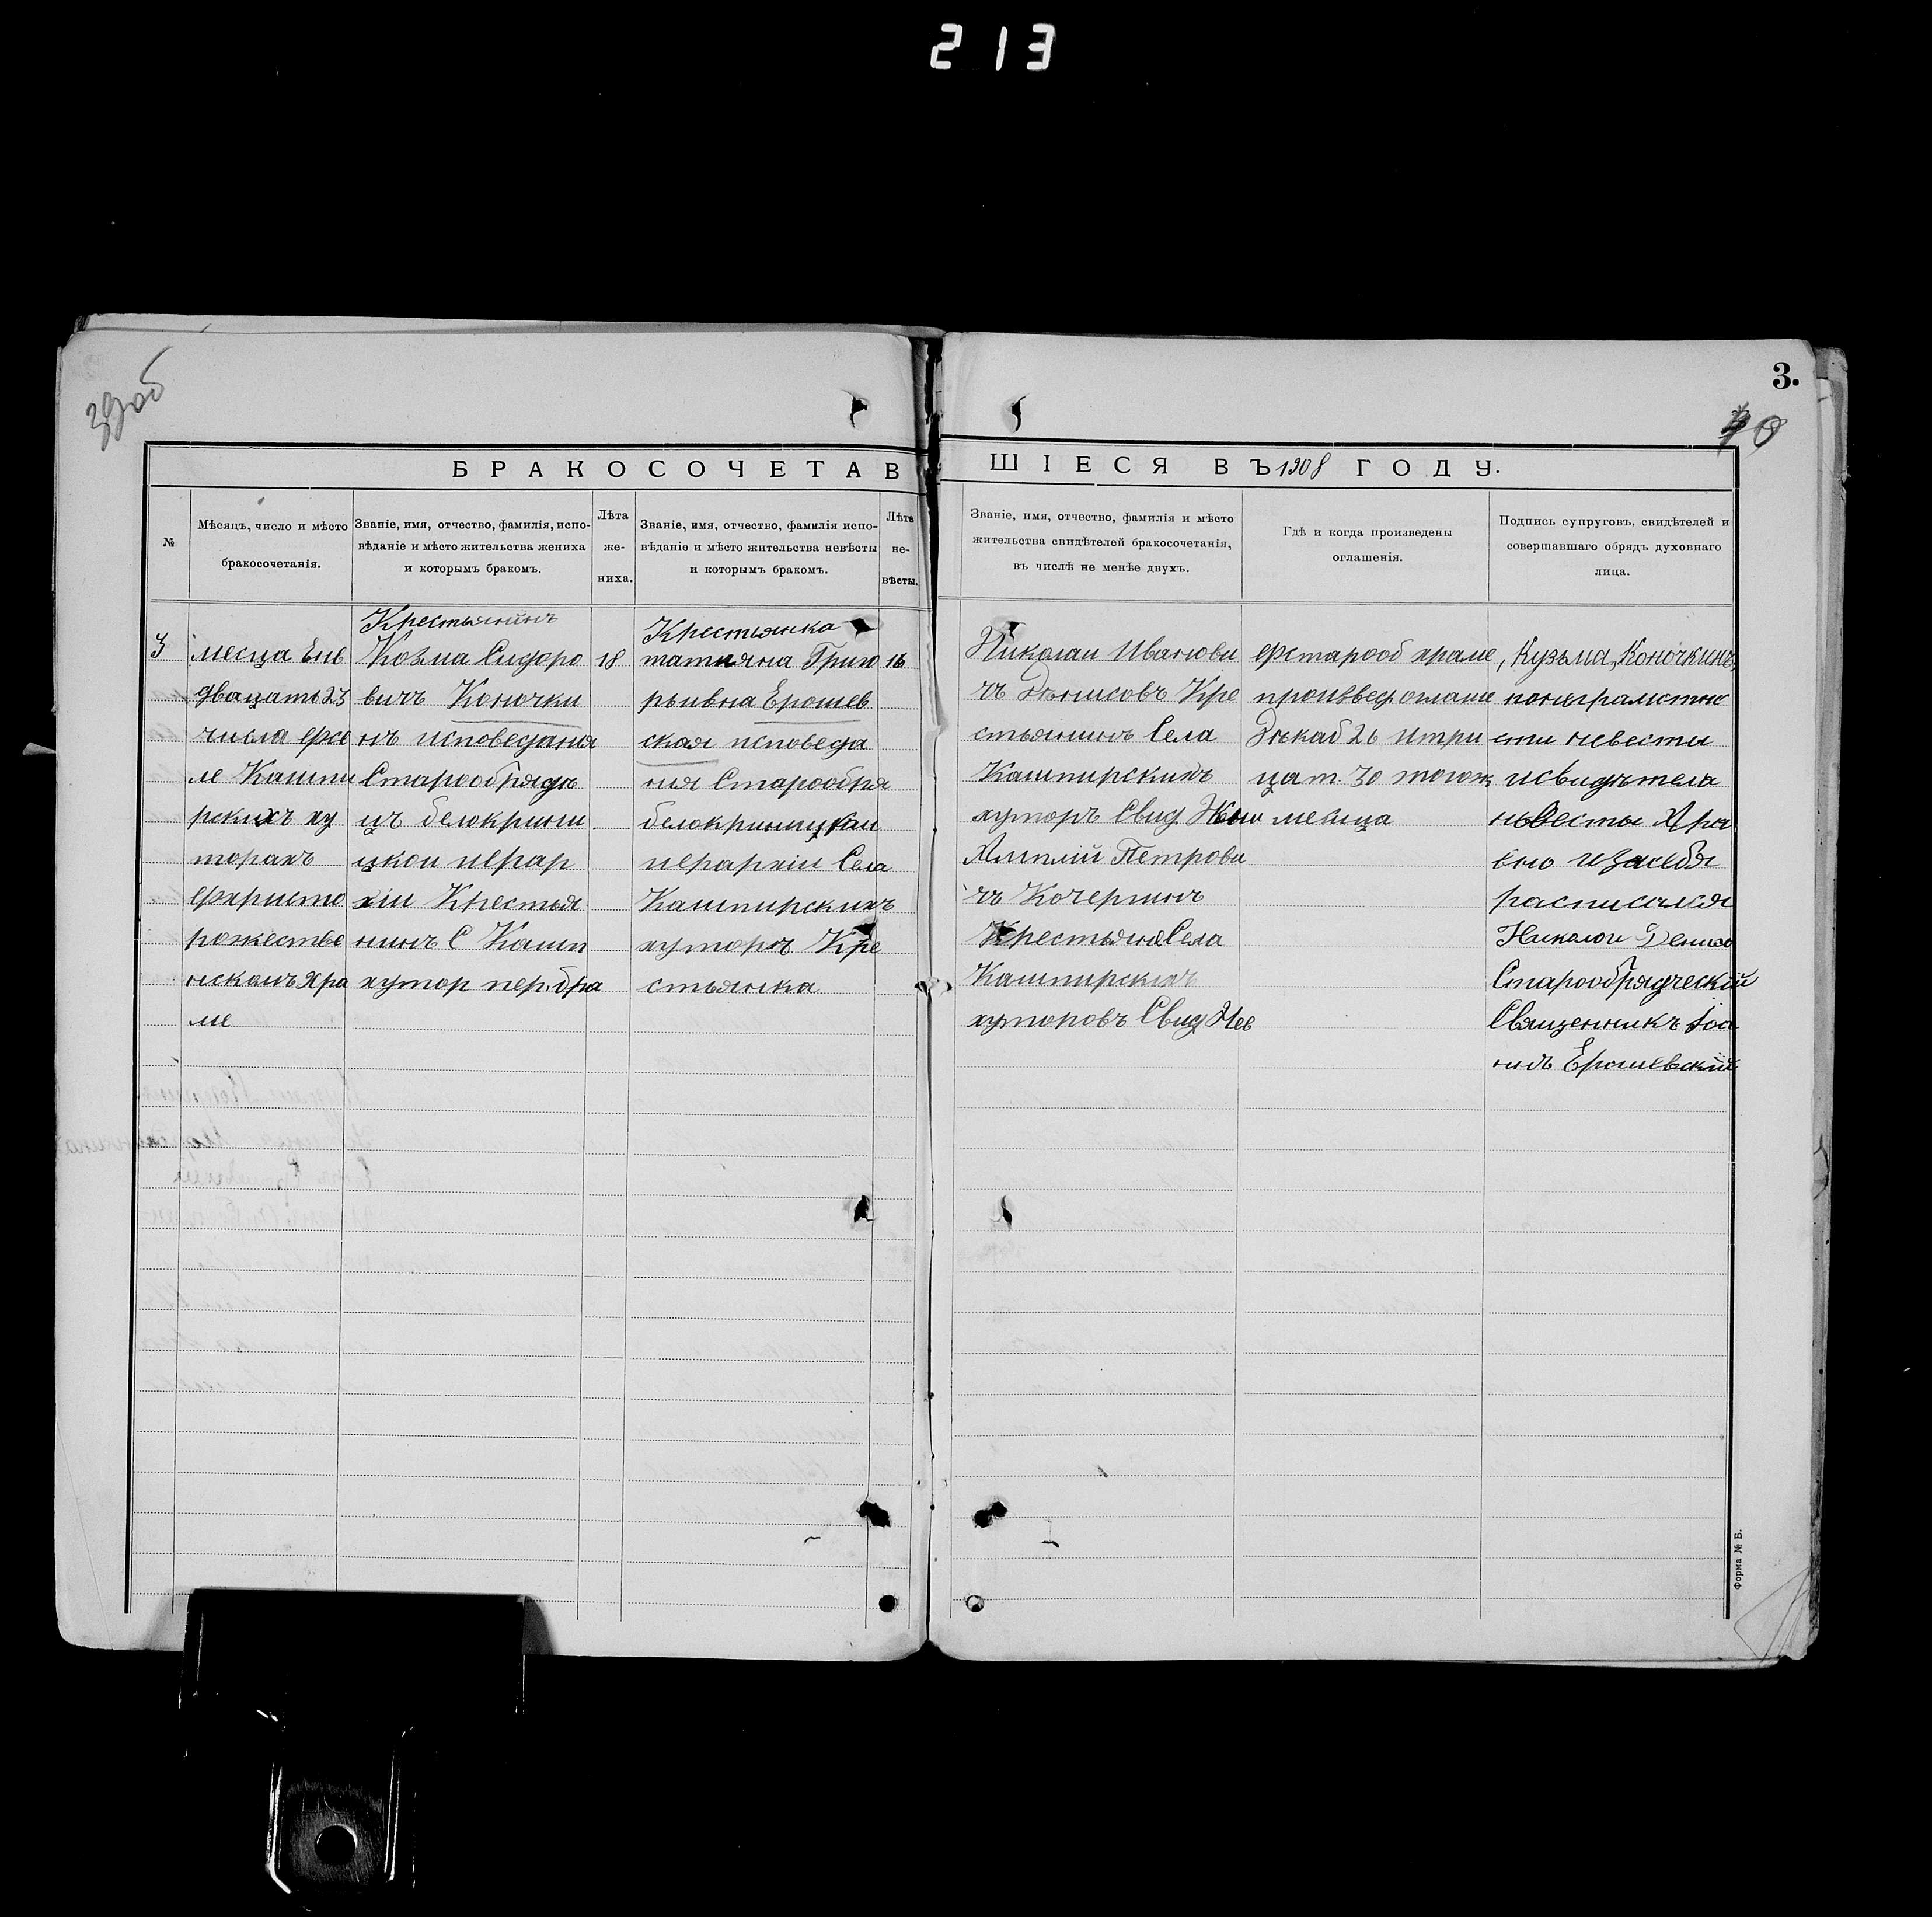 213
39об
3.
40
БРАКОСОЧЕТАВШІЕСЯ ВЪ 1908 ГОДУ.
№
Мѣсяцъ, число и мѣсто
бракосочетанія.
Званіе, имя, отчество, фамилія, испо-
вѣданіе и мѣсто жительства жениха
и которымъ бракомъ.
Лѣта
же-
ниха.
Званіе, имя, отчество, фамилія испо-
вѣданіе и мѣсто жительства невѣсты
и которымъ бракомъ.
Лѣта
не-
вѣсты.
Званіе, имя, отчество, фамилія и мѣсто
жительства свидѣтелей бракосочетанія,
въ числѣ не менѣе двухъ.
Гдѣ и когда произведены
оглашенія.
Подпись супруговъ, свидѣтелей и
совершавшаго обрядъ духовнаго
лица.
3
месца Енв
двацать 23
числа
ле Кашпи
рскихъ ху
торахъ
рожестве
нскомъ хра
ме
Крестьянинъ
Козма Сидоро
вичъ Коночки
нъ исповедания
Старообрядѣ
цъ белокрини
цкои иерар
хіи Крестья
нинъ С Кашп
хутор пер. бра
18
Крестьянка
татияна Григо
рьивна Ерошев
ская исповеда
ния Старообря
белокриницкаи
иерархіи Села
Кашпирскихъ
хуторъ Кре
стьянка
16
Николаи Иванови
чъ Дѣнисовъ Кре
стьянинъ Села
Кашпирскихъ
хуторъ Свид. Жени
Петрови
чъ Кочергинъ
Крестьянъ Села
Кашпирскихъ
хуторовъ Свид Нев
старооб храме
произвед огламе
Дѣкаб 26 итри
цат. 30 тогож
месяца
Кузьма, Коночкинъ,
понеграмотно
сти невесты
исвидѣтела
нъвесты
изасебя
расписался
Николаи Денисо
Старообрядческій
Священникъ Іоа
ннъ Ерошевскій
Форма № Б.